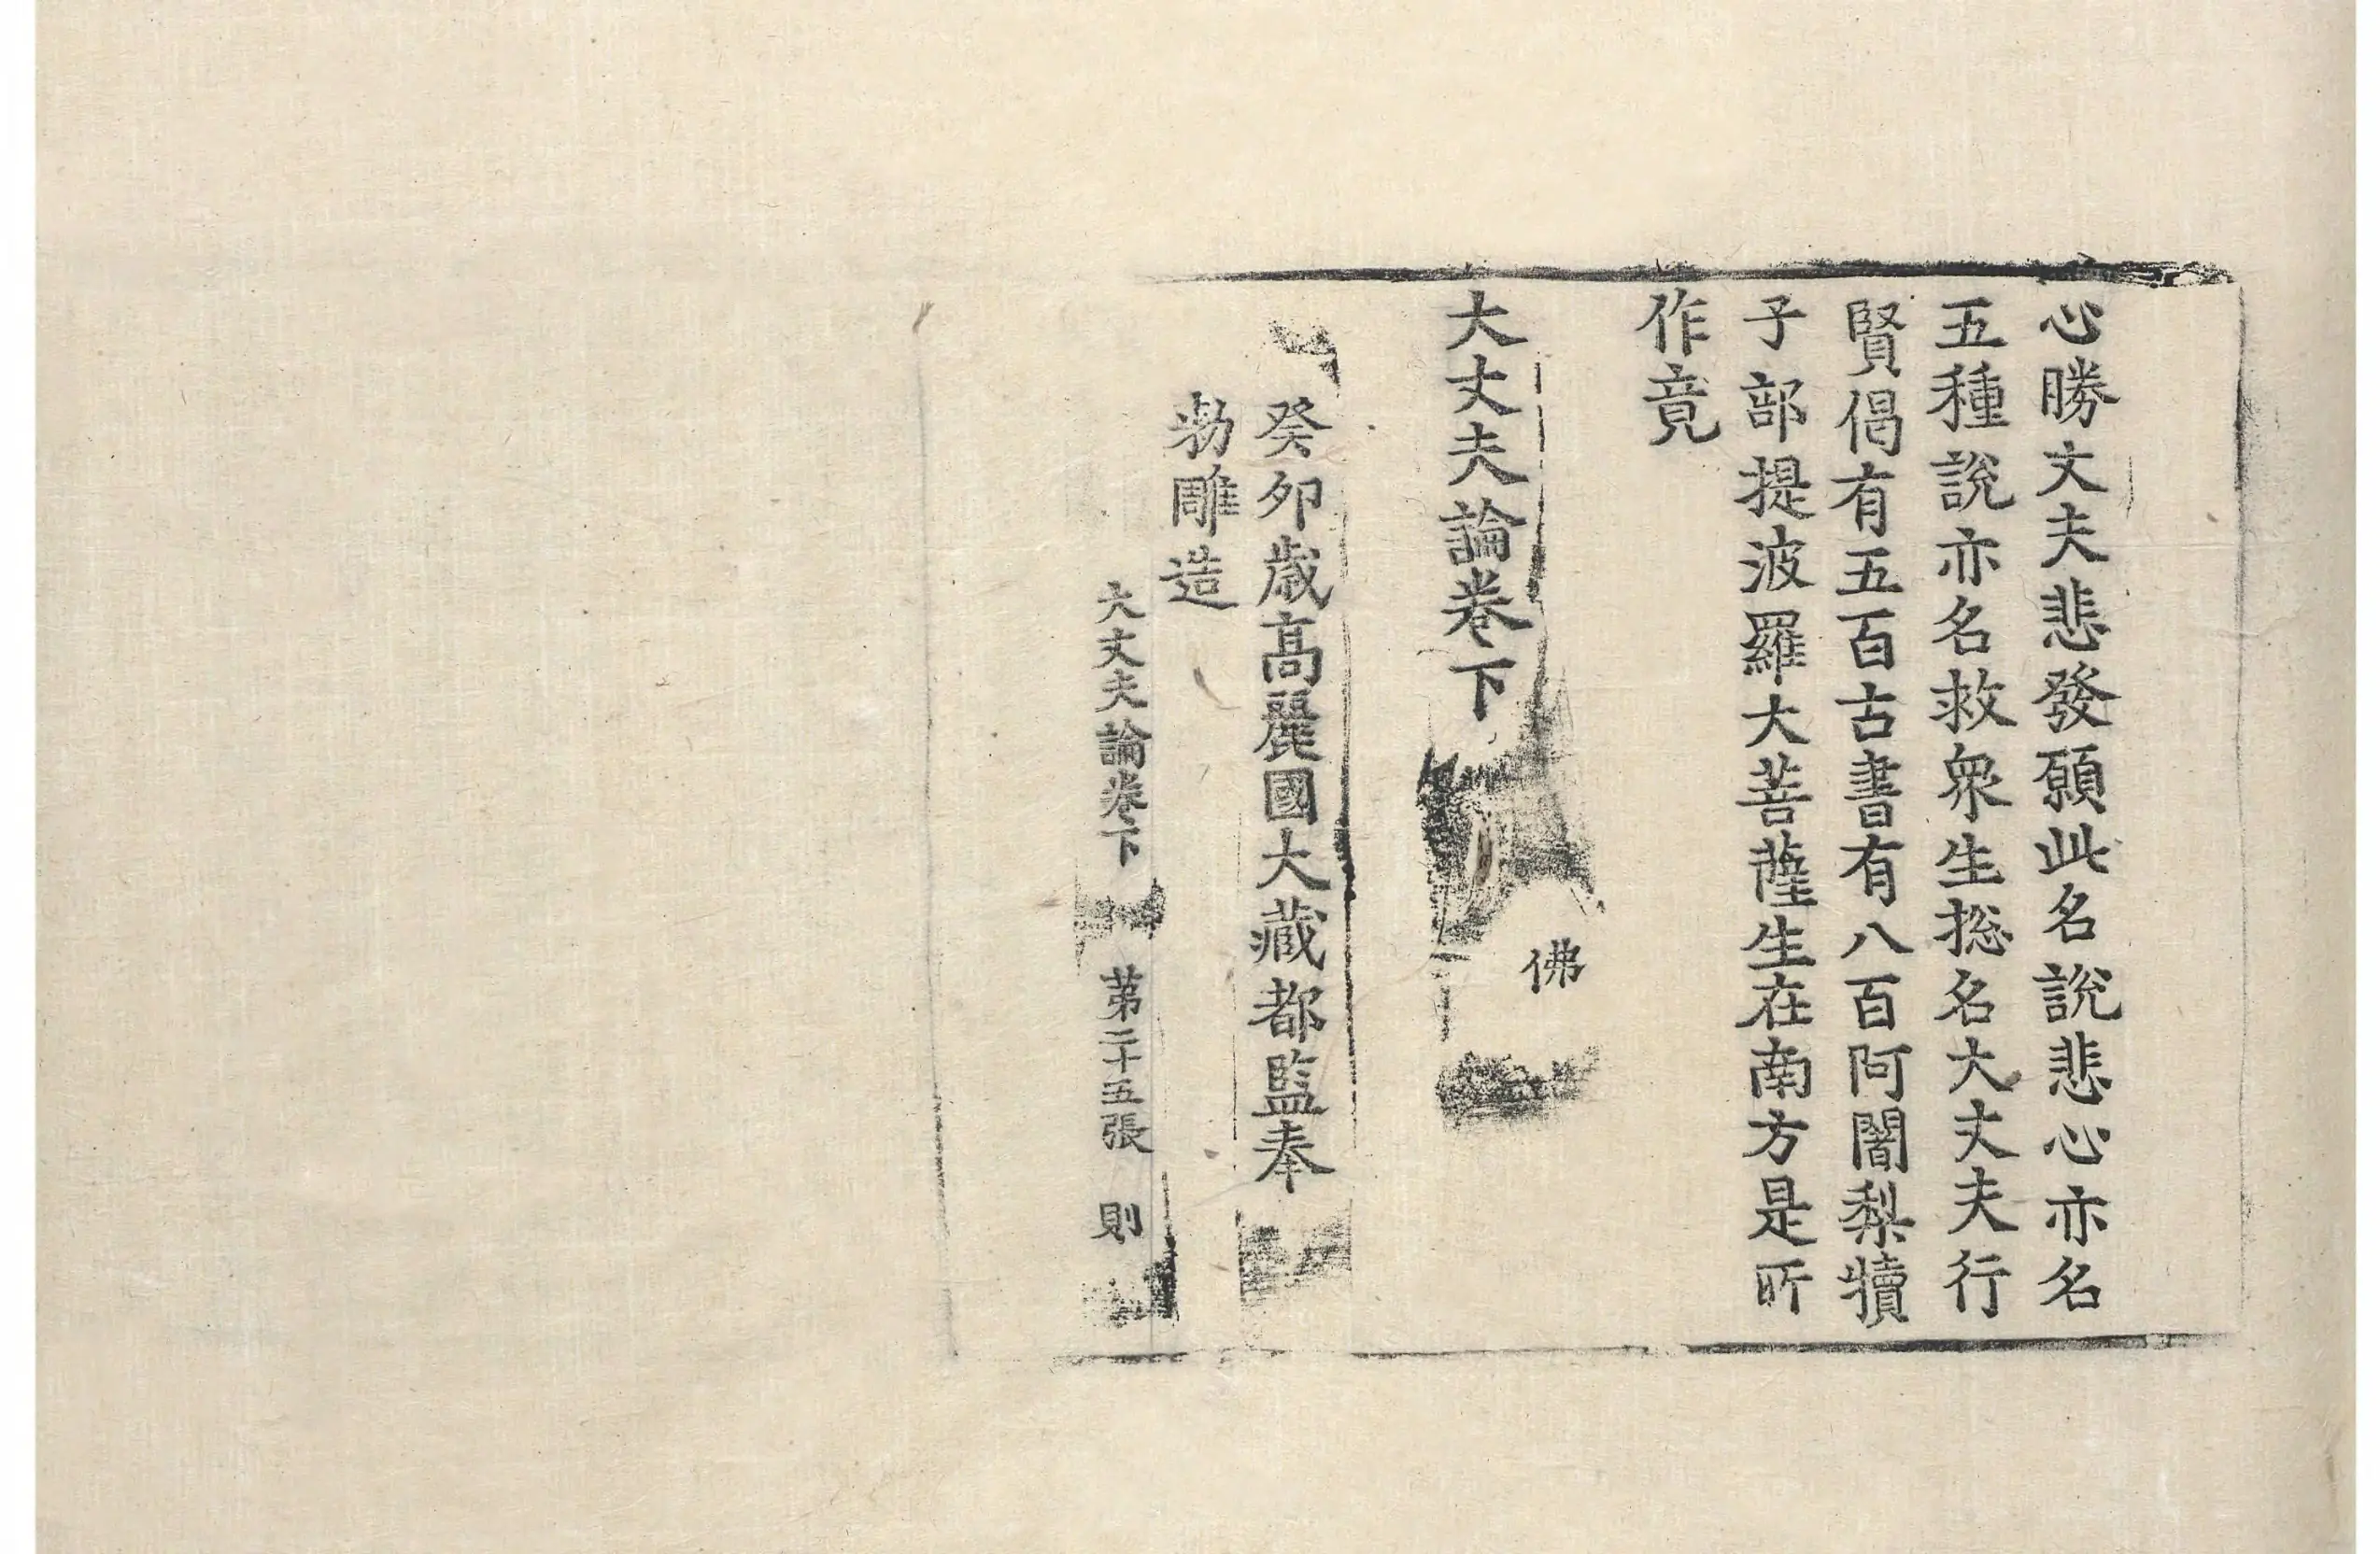 心勝丈夫悲發願此名說悲心亦名
五種說亦名救衆生捴名大丈夫行
賢偈有五百古書有八百阿闍梨犢
子部提波羅大菩薩生在南方是所
作竟
大丈夫論卷下
佛
癸卯歲高麗國大藏都監奉
勑雕造
大丈夫論卷下 第二十五張 則